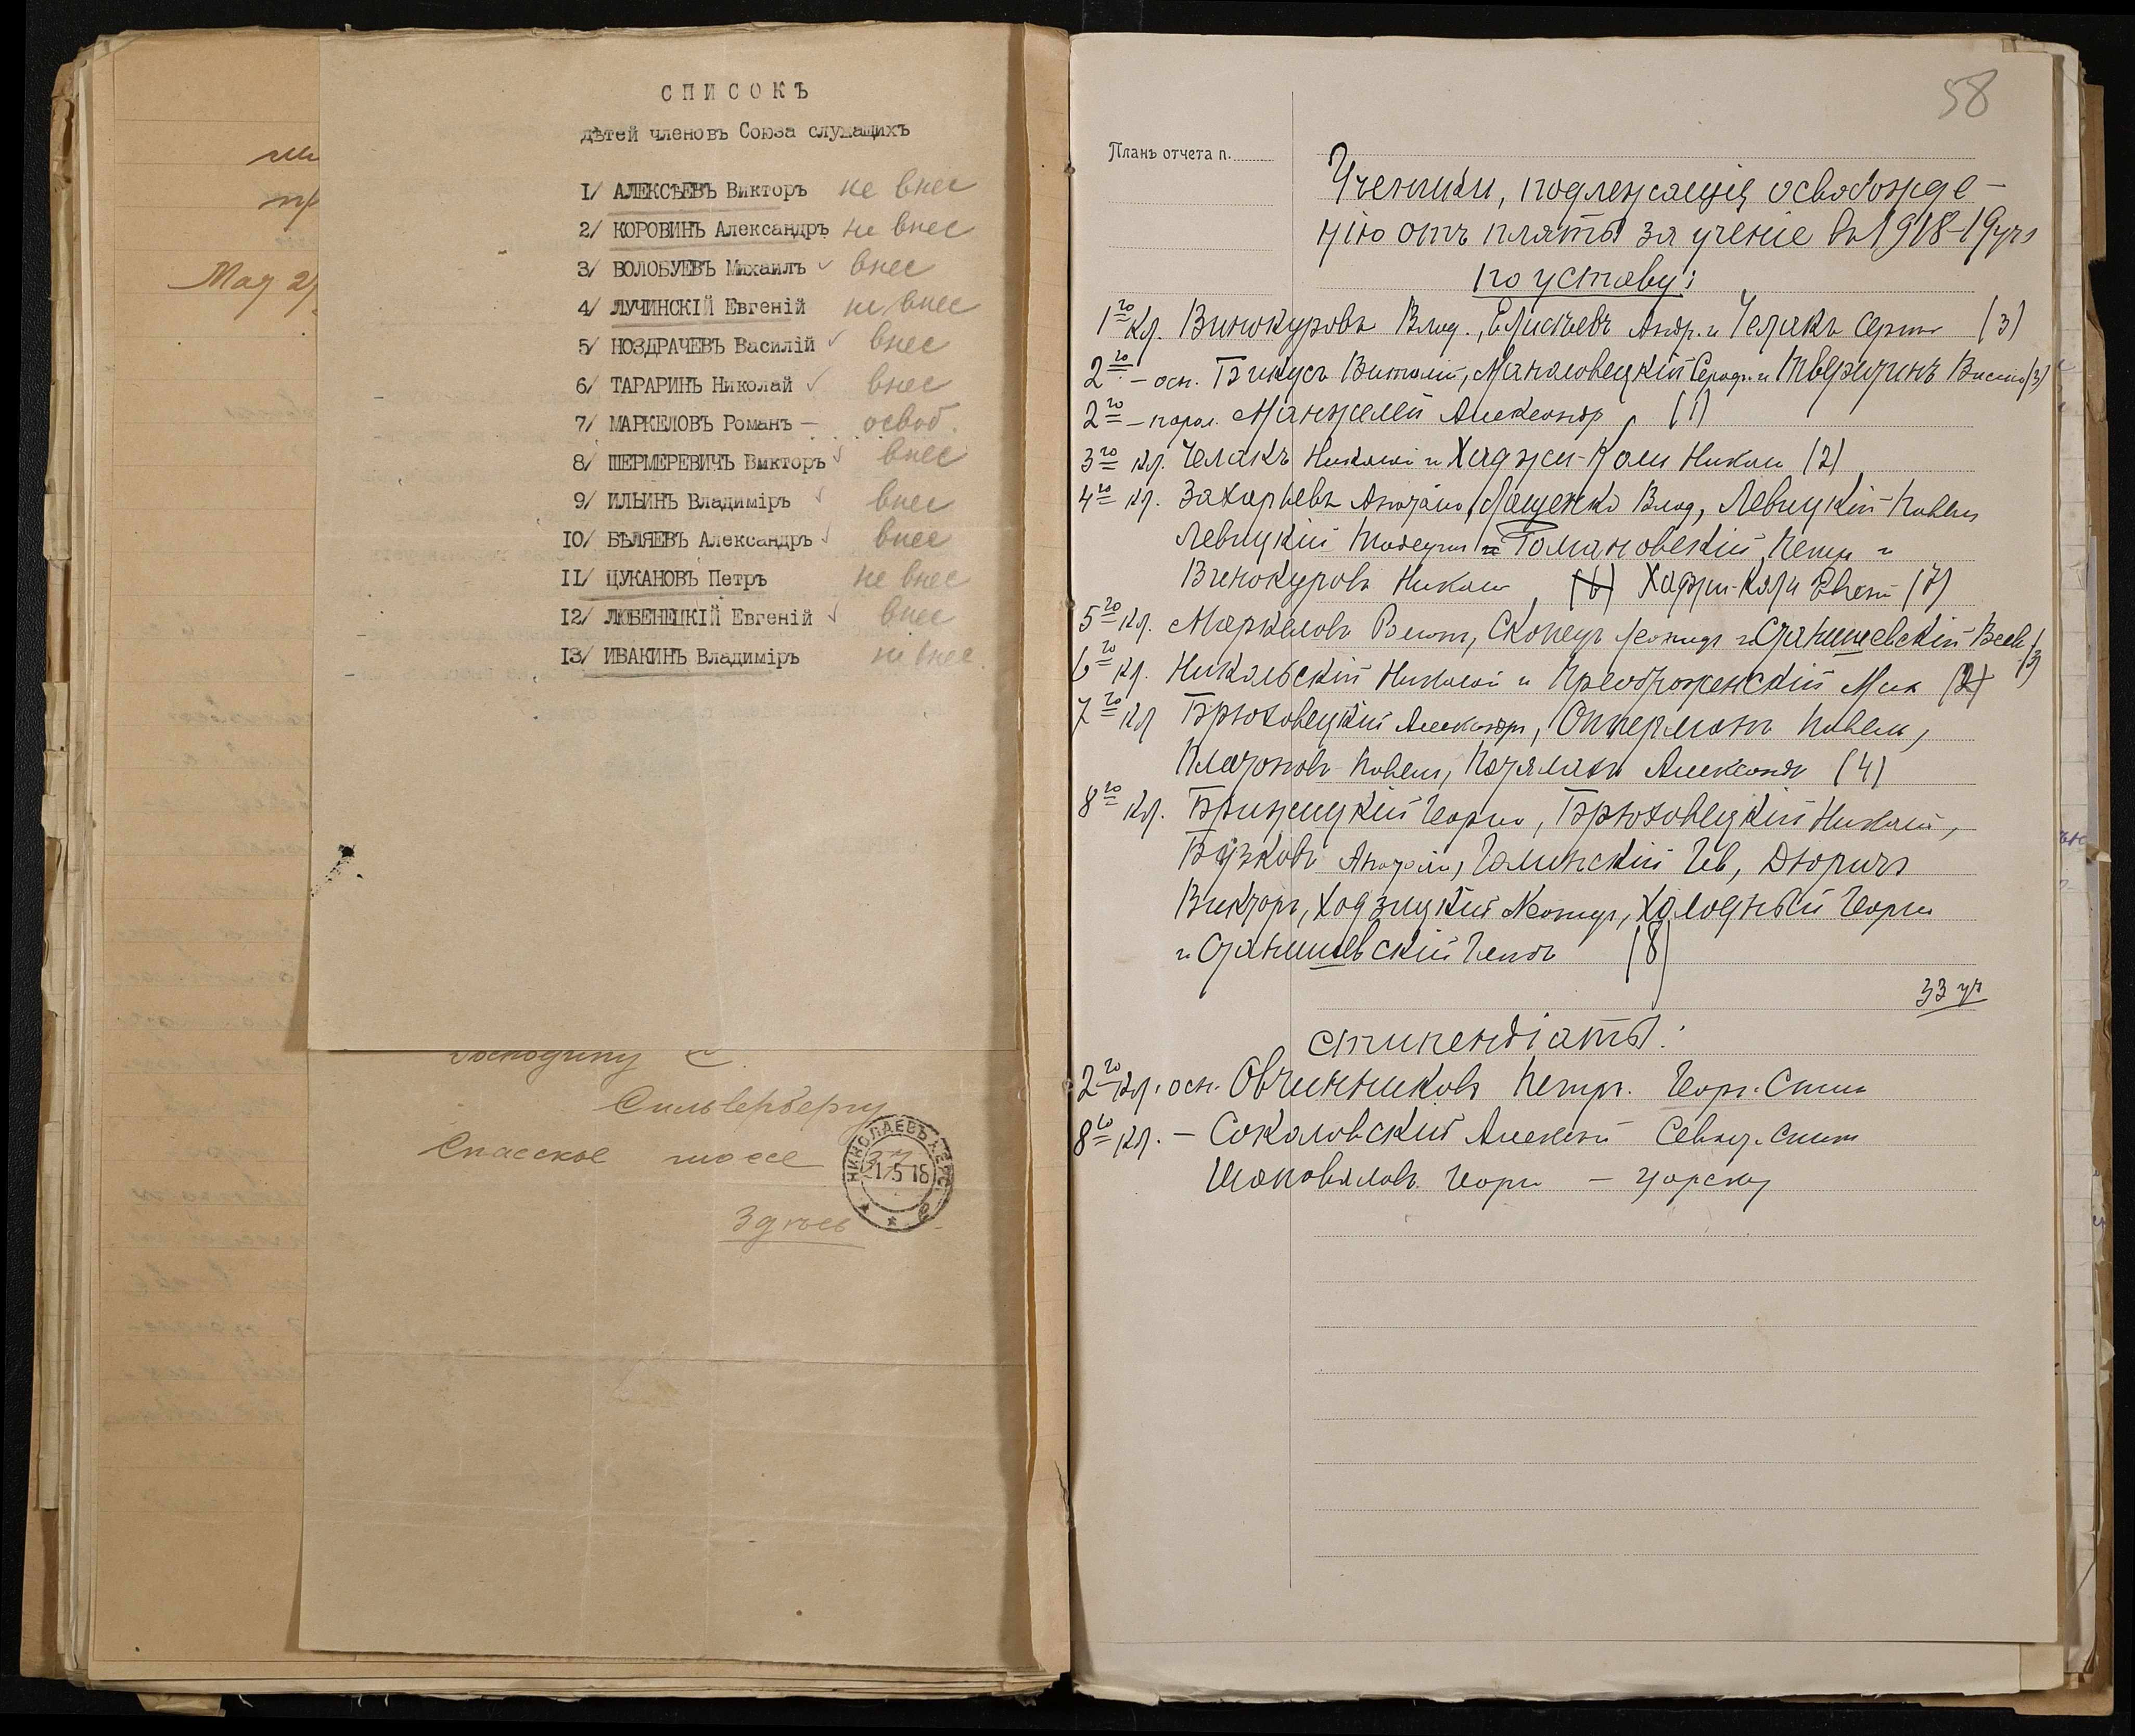 СПИСОКЪ
дѣтей членовъ Союза служащихъ
1/ АЛЕКСѢЕВЪ Викторъ не внес
2/ КОРОВИНЪ Александръ не внес
3/ ВОЛОБУЕВЪ Михаилъ ✓ внес
4/ ЛУЧИНСКІЙ Евгеній не внес
5/ НОЗДРАЧЕВЪ Василій ✓ внес
6/ ТАРАРИНЪ Николай ✓ внес
7/ МАРКЕЛОВЪ Романъ — освоб.
8/ ШЕРМЕРЕВИЧЪ Викторъ ✓ внес
9/ ИЛЬИНЪ Владиміръ ✓ внес
10/ БѢЛЯЕВЪ Александръ ✓ внес
11/ ЦУКАНОВЪ Петръ не внес
12/ ЛЮБЕНЕЦКІЙ Евгеній ✓ внес
13/ ИВАКИНЪ Владиміръ не внес
Господину С.
Сильвербергу
Спасское шоссе
Здѣсь
НИКОЛАЕВЪ ХЕРС.
1 5 18
Мая 2
58
Планъ отчета п.
Ученики, подлежащіе освобожде-
нію отъ платы за ученіе въ 1918-19 уч г
по уставу:
1го кл. Винокуровъ Влад., Елисѣевъ Андр. и Челакъ Серги (3)
2го – осн. Бикусъ Виталій, Маналовецкій и Твердчинъ Васил (3)
2го – парал. Манжелей Александр (1)
3го кл. Челакъ Николай и Хаджи-Коли Никол (2)
4го кл. Захарьевъ Анатолі, Лащенко Влад, Левицкій Павел
Левицкій и Романовскій Петр и
Винокуровъ Никол (6) Хаджи-Коли Евген (7)
5го кл. Маркеловъ Викт, Скопецъ Леонид и Станишевскій Всев (3)
6го кл. Никольскій Николай и Преображенскій Мих (2)
7го кл Брюховецкій Александр, Опперманъ Павел,
Платоновъ Павел, Александр (4)
8го кл. Брижицкій Георги, Брюховецкій Николай,
Бузковъ Анатолі, Галинскій Дюричъ
Викторъ, Ходзицкій Леонид, Холодный Георги
и Станишевскій (8)
33 уч
стипендіаты:
2го кл. осн. Овчинниковъ Петр. Георг. Стип
8го кл. – Соколовскій Алексѣй Стип
Шаповаловъ Георг –